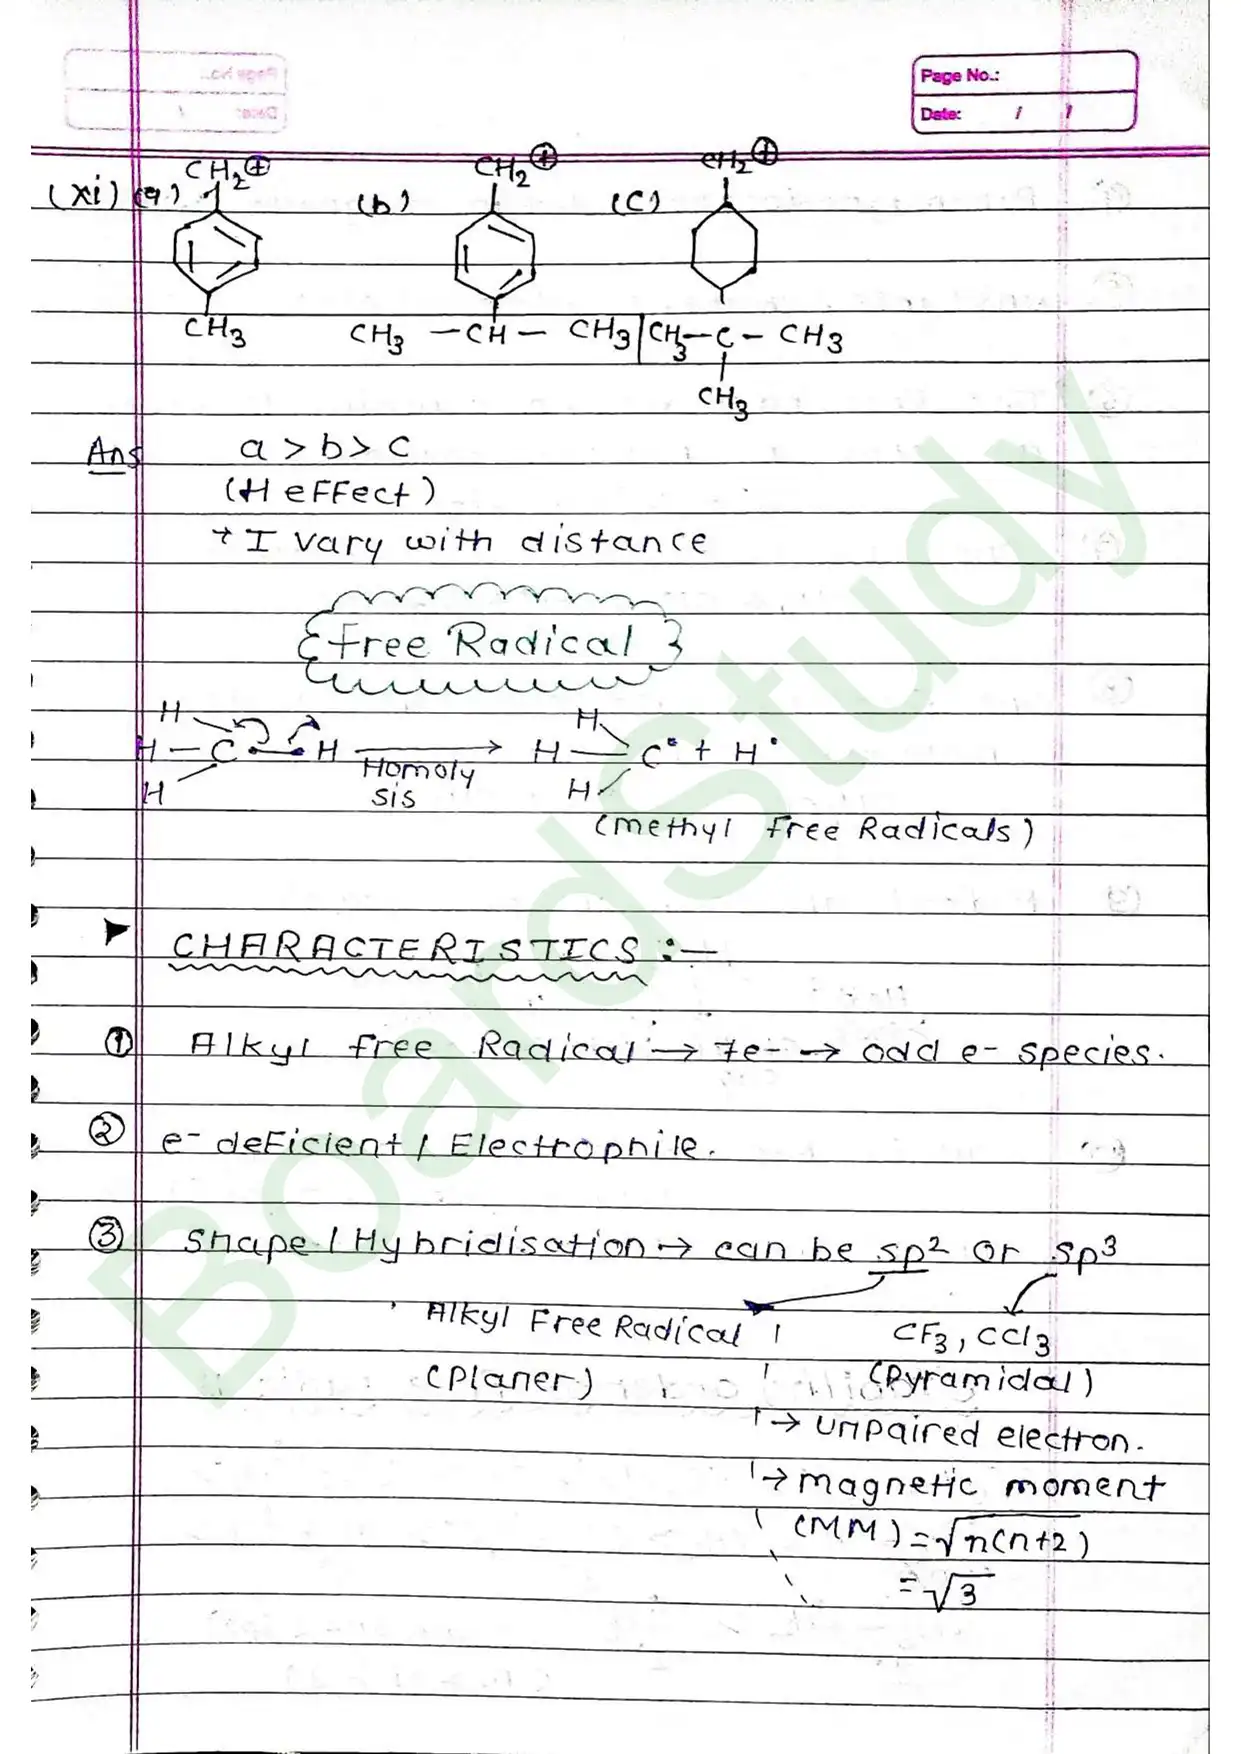 Page No.:
Date: / /
(xi) (a) CH2⊕ (b) CH2⊕ (C) CH2⊕
CH3 CH3 —CH— CH3 | CH3—C— CH3
CH3
Ans a > b > C
(H eFFect)
+ I vary with distance
Free Radical
H H
H — C — H ⟶ H — C• + H•
Homoly
sis
H H
(methyl free Radicals)
CHARACTERISTICS :—
① Alkyl free Radical → 7e- → odd e- species.
② e- deFicient / Electrophile.
③ Shape / Hybridisation → can be sp2 or sp3
Alkyl Free Radical CF3, CCl3
(Planer) (Pyramidal)
→ unpaired electron.
→ magnetic moment
(MM) = √n(n+2)
= √3
BoardStudy